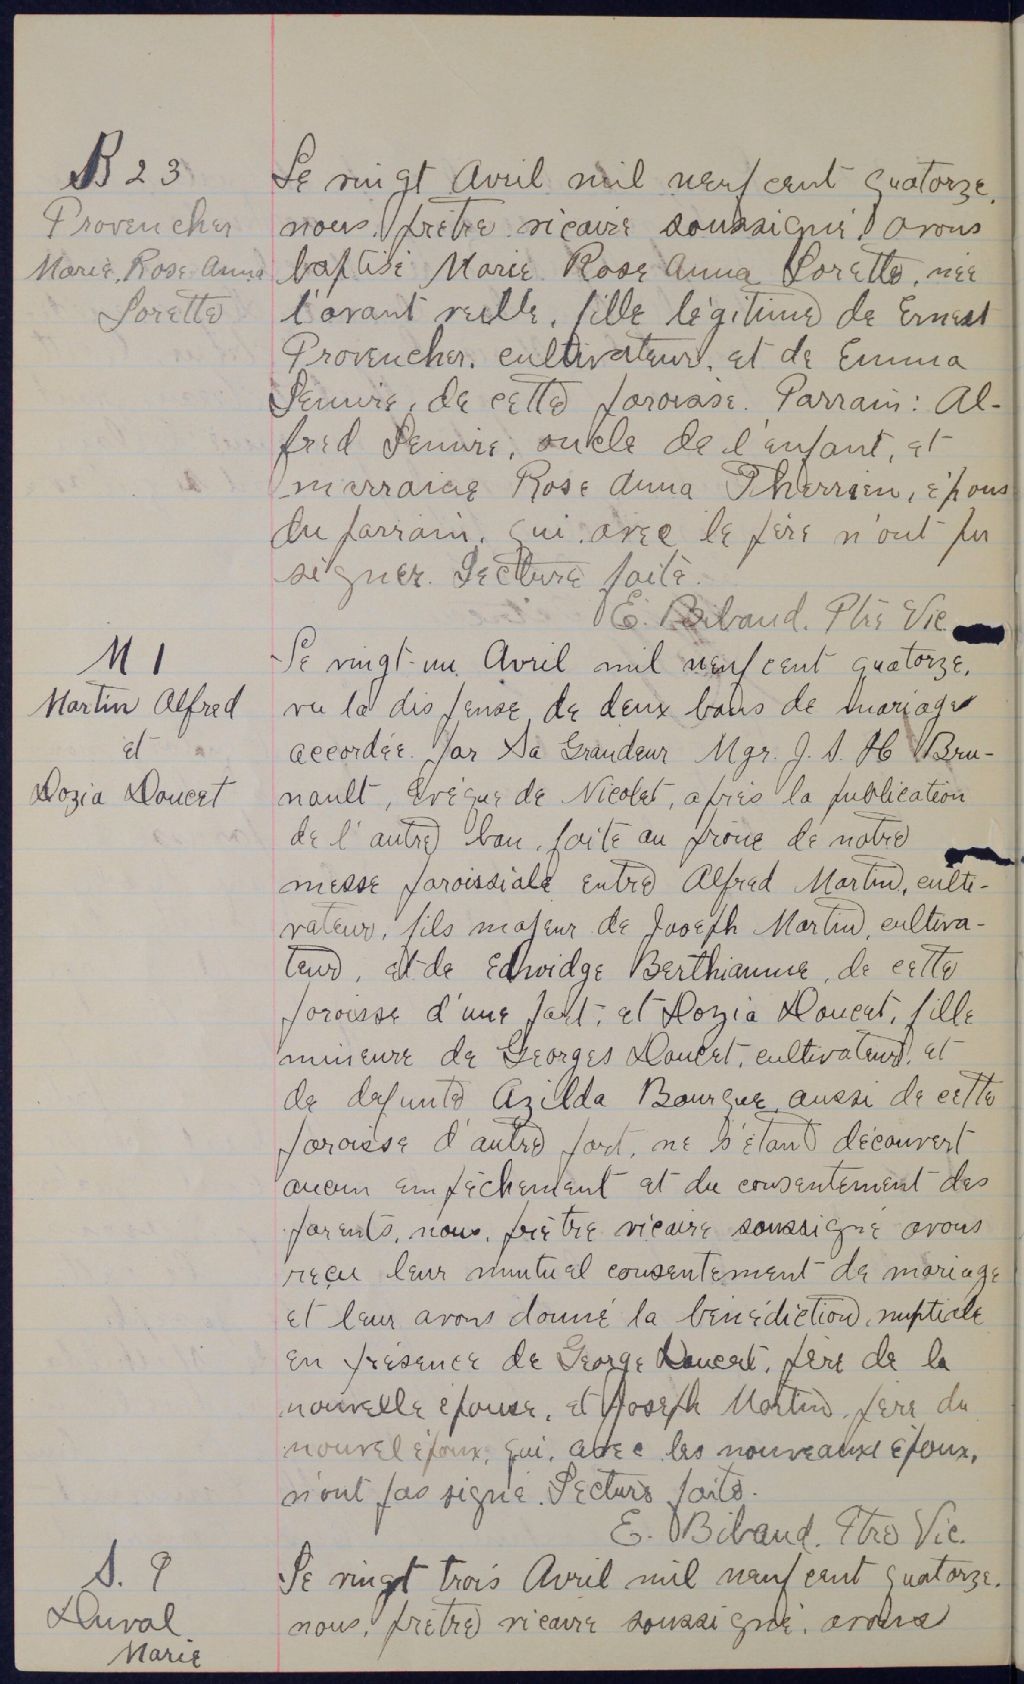 B 23
Provencher
Marie, Rose Anna
Lorette
Le vingt Avril mil neuf cent quatorze,
nous, prêtre vicaire soussigné, avons
baptisé Marie Rose Anna Lorette, née
l'avant veille, fille légitime de Ernest
Provencher, cultivateur, et de Emma
Lemire, de cette paroisse. Parrain: Al-
fred Lemire, oncle de l'enfant, et
marraine Rose Anna Therrien, épous
du parrain, qui, avec le père n'ont pu
signer. Lecture faite.
E. Bibaud. Ptre Vic.
M 1
Martin Alfred
et
Dozia Doucet
Le vingt-un Avril mil neuf cent quatorze,
vu la dispense de deux bans de mariage
accordée par Sa Grandeur Mgr. J. S. H Bru-
nault, Evêque de Nicolet, après la publication
de l'autre ban, faite au prône de notre
messe paroissiale entre Alfred Martin, culti-
vateur, fils majeur de Joseph Martin, cultiva-
teur, et de Edwidge Berthiaume, de cette
paroisse d'une part, et Dozia Doucet, fille
mineure de Georges Doucet, cultivateur, et
de defunte Azilda Bourque, aussi de cette
paroisse d'autre part, ne s'étant découvert
aucun empêchement et du consentement des
parents, nous, prêtre vicaire soussigné avons
reçu leur mutuel consentement de mariage
et leur avons donné la bénédiction nuptiale
en présence de George Doucet, père de la
nouvelle épouse, et Joseph Martin, père du
nouvel époux, qui, avec les nouveaux époux,
n'ont pas signé. Lecture faite.
E. Bibaud. Ptre Vic.
S. 9
Duval
Marie
Le vingt trois Avril mil neuf cent quatorze,
nous, prêtre vicaire soussigné, avons